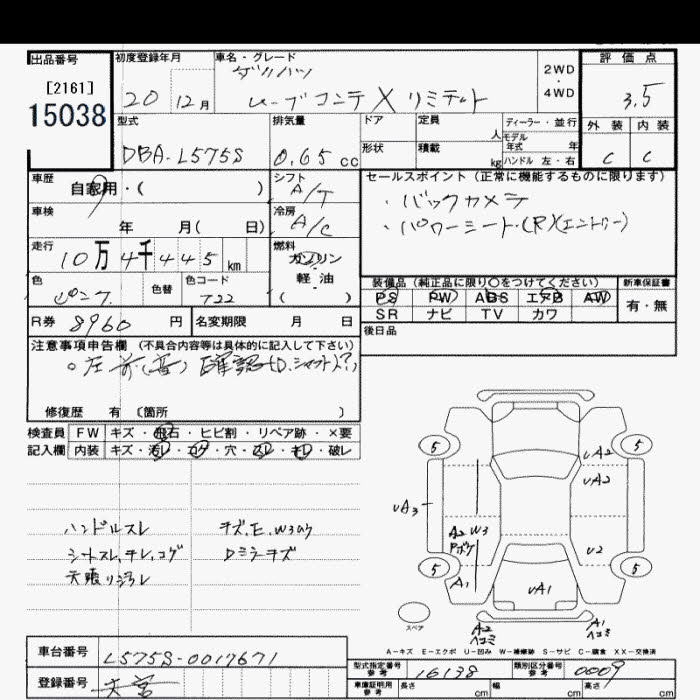 出品番号
[2161]
15038
初度登録年月
20 12月
車名・グレード
ダイハツ
ムーブコンテ X リミテット
2WD
4WD
評価点
3.5
外装 内装
C C
型式
DBA-L575S
排気量
0.65 cc
ドア
形状
定員
人
積載
kg
ディーラー・並行
モデル
年式 年
ハンドル 左・右
車歴
自家用・( )
シフト
A/T
車検
年 月( 日)
冷房
A/C
走行
10万4千445 km
燃料
ガソリン
軽油
( )
色
ピンク
色替
色コード
T22
セールスポイント(正常に機能するものに限ります)
・バックカメラ
・パワーシート・(R)(エントリー)
装備品(純正品に限り○をつけてください)
新車保証書
PS PW ABS エアB AW
SR ナビ TV カワ
有・無
R券 8960 円
名変期限 月 日
後日品
注意事項申告欄(不具合内容等は具体的に記入して下さい)
○左前(音)確認(D.シャフト)?
修復歴 有 〔箇所 〕
検査員 FW キズ・飛石・ヒビ割・リペア跡・×要
記入欄 内装 キズ・汚レ・コゲ・穴・スレ・キレ・破レ
ハンドルスレ
シートスレ、キレ、コゲ
天張リ汚レ
キズ、E、W3有
Dミラーキズ
5 5
UA2
UA2
UA3
A2 W3
Pボケ
U2
5 5
A1
UA1
スペア
A2
ヘコミ
A1
ヘコミ
A-キズ E-エクボ U-凹み W-補修跡 S-サビ C-腐食 XX-交換済
車台番号 L575S-0017671
登録番号
型式指定番号
参考
16138
類別区分番号
参考
0009
車庫証明用
参考
長さ cm 幅 cm 高さ cm